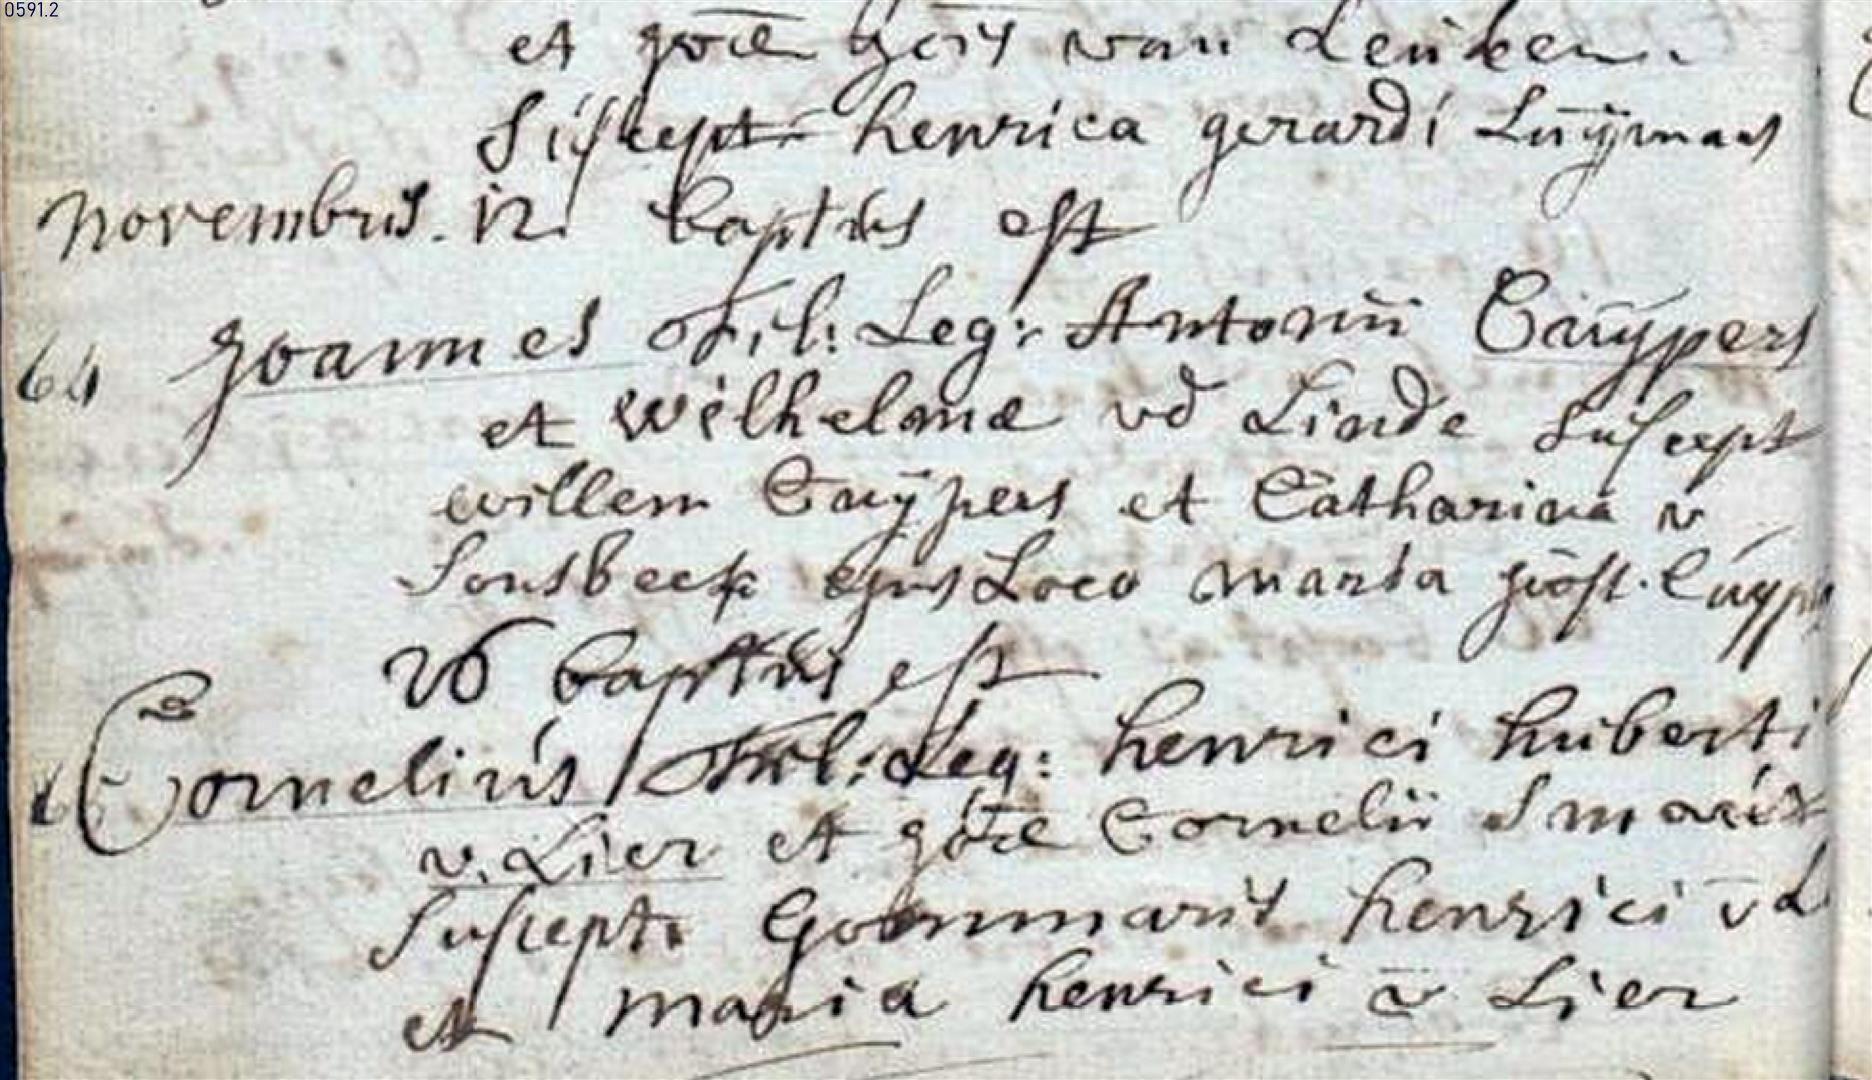 0591.2
et Joae Goris van Leuken.
Suscept henrica gerardi Luÿmans
novembris. 12 baptus est
64 Joannes fil: Leg: Antonii Cuÿpers
et Wilhelmae vd Linde Suscept
willem Cuÿpers et Catharina v
Sonsbeek ejus Loco maria Joost. Cuyp
26 baptus est
Cornelius fil: Leg: henrici huberti
v. Lier et Joae Cornelii
Suscept. Gommarus henrici v L
et maria henrici v Lier